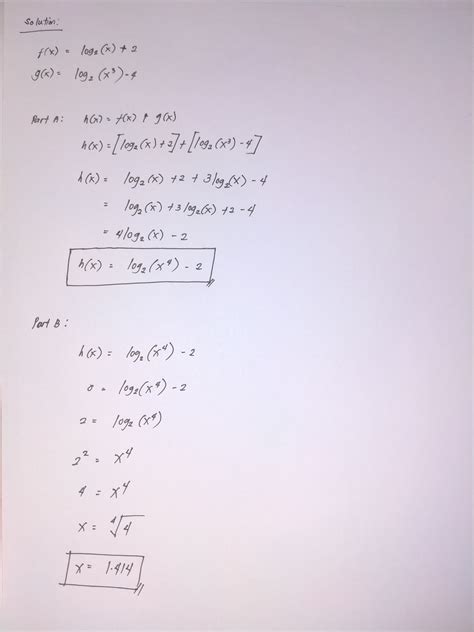 Solution:
f(x) = log₂(x) + 2
g(x) = log₂(x³) - 4
Part A: h(x) = f(x) + g(x)
h(x) = [log₂(x) + 2] + [log₂(x³) - 4]
h(x) = log₂(x) + 2 + 3log₂(x) - 4
= log₂(x) + 3log₂(x) + 2 - 4
= 4log₂(x) - 2
h(x) = log₂(x⁴) - 2
Part B:
h(x) = log₂(x⁴) - 2
0 = log₂(x⁴) - 2
2 = log₂(x⁴)
2² = x⁴
4 = x⁴
x = ∜4
x = 1.414